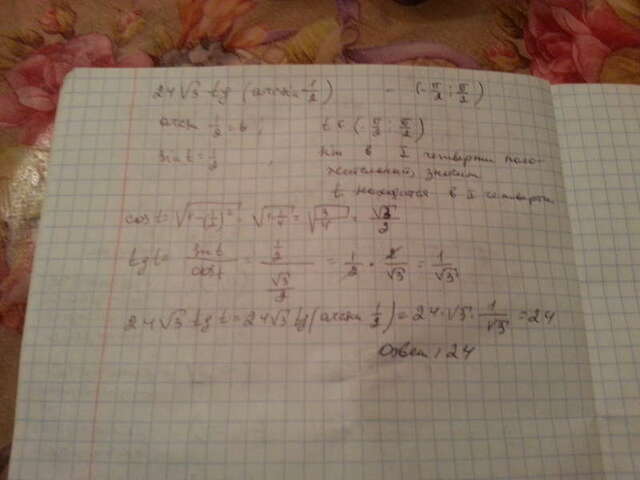 24√3 tg (arcsin 1/2) - (-π/2; π/2)
arcsin 1/2 = t, t ∈ (-π/2; π/2)
sin t = 1/2, sin в I четверти поло-
жительный, значит
t находится в I четверти
cos t = √(1-(1/2)²) = √(1-1/4) = √(3/4) = √3/2
tg t = sin t/cos t = (1/2)/(√3/2) = 1/2 · 2/√3 = 1/√3
24√3 tg t = 24√3 tg (arcsin 1/2) = 24·√3·1/√3 = 24
Ответ: 24